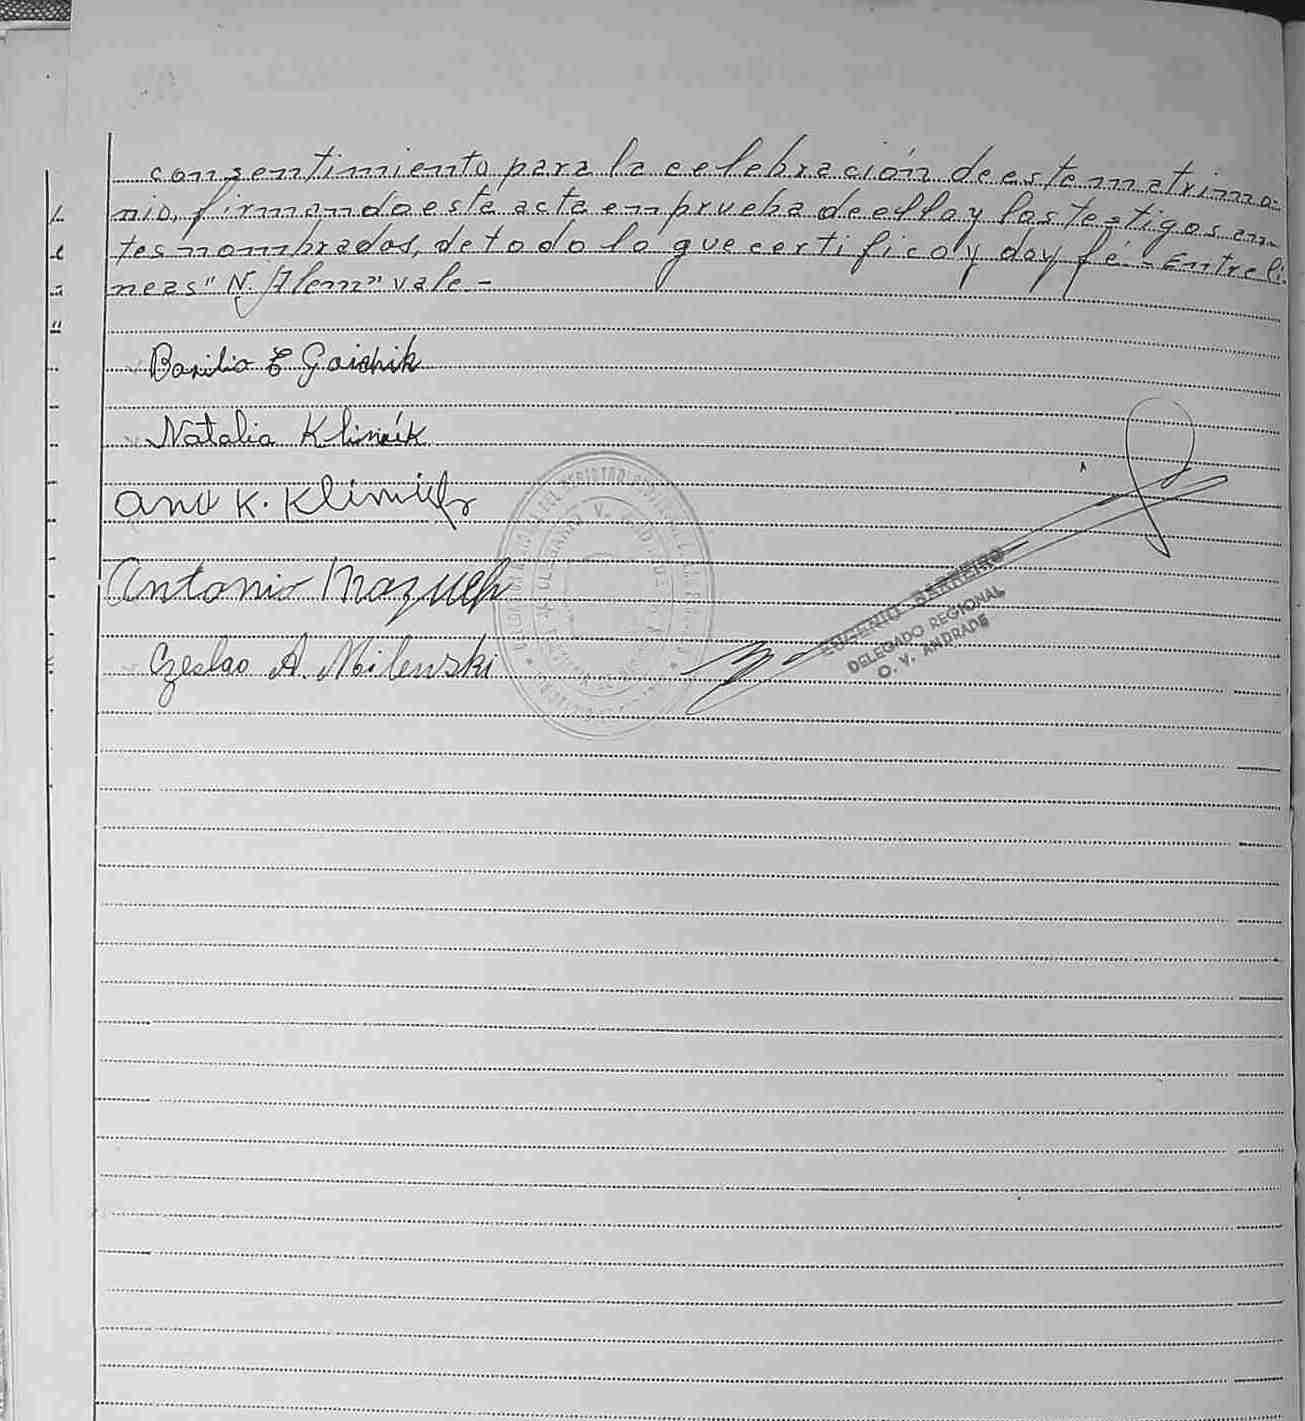 consentimiento para la celebración de este matrimo-
nio, firmando este acta en prueba de ello y los testigos an-
tes nombrados, de todo lo que certifico y doy fé.- Entre lí-
neas "N. Alem" vale-
Basilio E Gaichik
Natalia Klimčik
ana K. Klimiuk
Antonio Mazur
Czeslao A. Milewski
EUGENIO BARREIRO
DELEGADO REGIONAL
O. V. ANDRADE